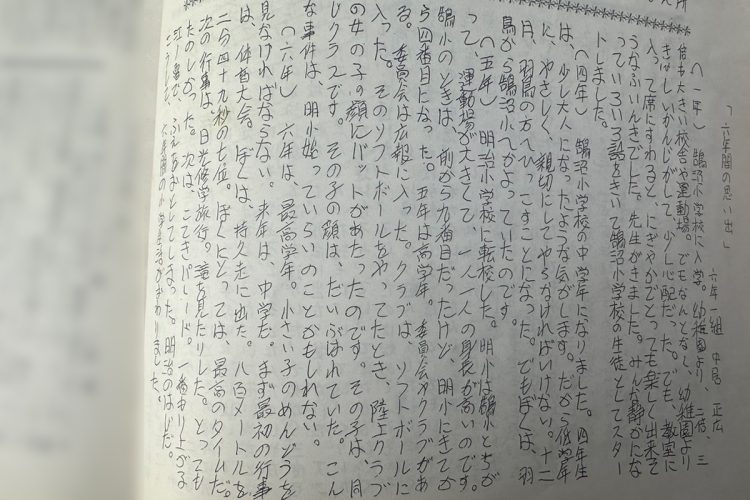 「六年間の思い出」
六年一組 中居 正広
(一年) 鵠沼小学校に入学。幼稚園より、二倍、三
倍も大きい校舎や運動場。でもなんとなく、幼稚園より
きびしいかんじがして、少し心配だった。でも、教室に
入って席にすわると、にぎやかでとっても楽しく出来そ
うなふいんきでした。先生がきました。みんな静かにな
っていろいろ話をきいて鵠沼小学校の生徒としてスター
トしました。
(四年) 鵠沼小学校の中学年になりました。四年生
は、少し大人になったような気がします。だから低学年
に、やさしく、親切にしてやらなければいけない。十二
月、羽鳥の方へひっこすことになった。でもぼくは、羽
鳥から鵠沼小へかよっていたのです。
(五年) 明治小学校に転校した。明小は鵠小とちが
って、運動場が大きくて、一人一人の身長が高いのです。
鵠小のときは、前から九番目だったけど、明小にきてか
ら四番目になった。五年は高学年。委員会やクラブがあ
る。委員会は広報に入った。クラブは、ソフトボールに
入った。そのソフトボールをやってたとき、陸上クラブ
の女の子の顔にバットがあたったのです。その子は、同
じクラスです。その子の顔は、だいぶはれていた。こん
な事件は、明小始っていらいのことかもしれない。
(六年) 六年は、最高学年。小さい子のめんどうを
見なければならない。来年は、中学だ。まず最初の行事
は、体育大会。ぼくは、持久走に出た。八百メートルを
二分四十九秒の七位。ぼくにとっては、最高のタイムだ。
次の行事は、日光修学旅行。滝を見たりした。とっても
たのしかった。次は、こてきパレード。一番もり上がる
所で、ふえをおとしてしまった。明治のはじだ。
こうして、六年間の小学生活がおわりました。